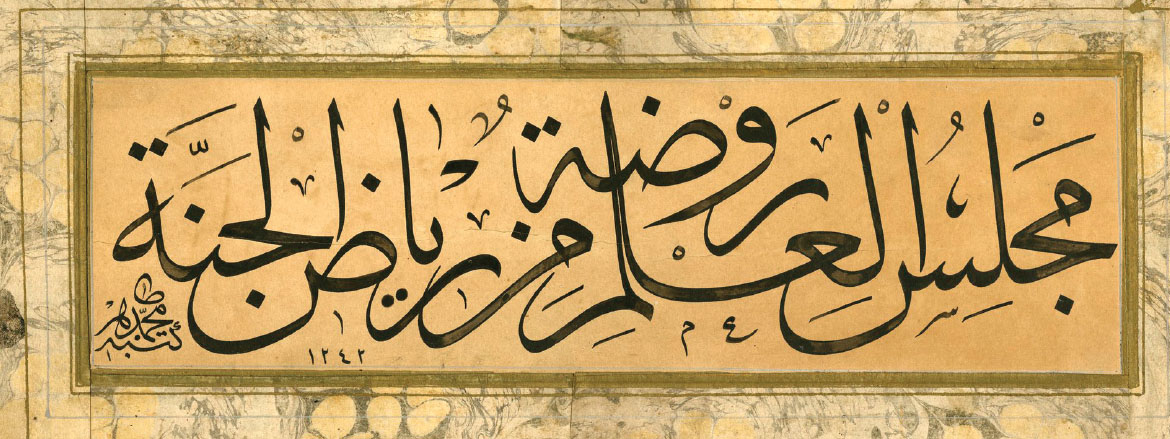 مجلس العالم روضة من رياض الجنّة
كتبه محمد طاهر
١٢٤٢